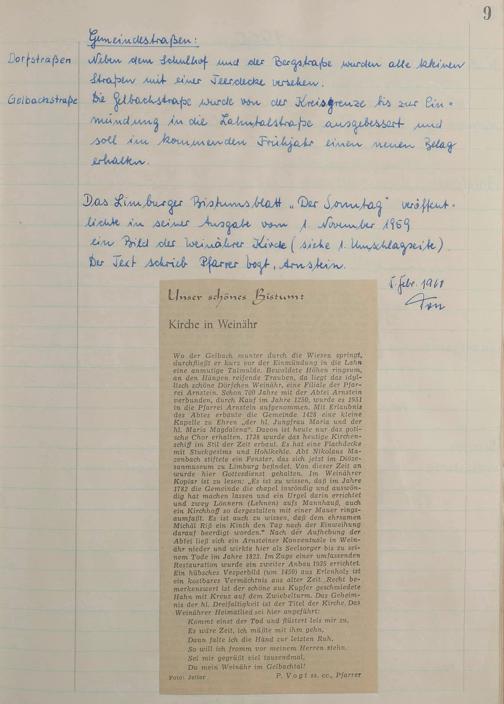 9
Gemeindestraßen:
Dorfstraßen Neben dem Schulhof und der Bergstraße wurden alle kleinen
Straßen mit einer Teerdecke versehen.
Gelbachstraße Die Gelbachstraße wurde von der Kreisgrenze bis zur Ein-
mündung in die Lahntalstraße ausgebessert und
soll im kommenden Frühjahr einen neuen Belag
erhalten.
Das Limburger Bistumsblatt „Der Sonntag" veröffent-
lichte in seiner Ausgabe vom 1. November 1959
ein Bild der Weinährer Kirche (siehe 1. Umschlagseite).
Der Text schrieb Pfarrer Vogt, Arnstein.
5. Febr. 1960
Unser schönes Bistum:
Kirche in Weinähr
Wo der Gelbach munter durch die Wiesen springt,
durchfließt er kurz vor der Einmündung in die Lahn
eine anmutige Talmulde. Bewaldete Höhen ringsum,
an den Hängen reifende Trauben, da liegt das idyl-
lisch schöne Dörfchen Weinähr, eine Filiale der Pfar-
rei Arnstein. Schon 700 Jahre mit der Abtei Arnstein
verbunden, durch Kauf im Jahre 1250, wurde es 1951
in die Pfarrei Arnstein aufgenommen. Mit Erlaubnis
des Abtes erbaute die Gemeinde 1428 eine kleine
Kapelle zu Ehren „der hl. Jungfrau Maria und der
hl. Maria Magdalena". Davon ist heute nur das goti-
sche Chor erhalten. 1728 wurde das heutige Kirchen-
schiff im Stil der Zeit erbaut. Es hat eine Flachdecke
mit Stuckgesims und Hohlkehle. Abt Nikolaus Ma-
zenbach stiftete ein Fenster, das sich jetzt im Diöze-
sanmuseum zu Limburg befindet. Von dieser Zeit an
wurde hier Gottesdienst gehalten. Im Weinährer
Kopiar ist zu lesen: „Es ist zu wissen, daß im Jahre
1782 die Gemeinde die chapel inwöndig und auswön-
dig hat machen lassen und ein Urgel darin errichtet
und zwey Lönnern (Lehnen) aufs Mannhauß, auch
ein Kirchhoff so dergestalten mit einer Mauer rings-
aumfaßt. Es ist auch zu wissen, daß dem ehrsamen
Michäl Riß ein Kinth den Tag nach der Einweihung
darauf beerdigt worden." Nach der Aufhebung der
Abtei ließ sich ein Arnsteiner Konventuale in Wein-
ähr nieder und wirkte hier als Seelsorger bis zu sei-
nem Tode im Jahre 1822. Im Zuge einer umfassenden
Restauration wurde ein zweiter Anbau 1925 errichtet.
Ein hübsches Vesperbild (um 1450) aus Erlenholz ist
ein kostbares Vermächtnis aus alter Zeit. Recht be-
merkenswert ist der schöne aus Kupfer geschmiedete
Hahn mit Kreuz auf dem Zwiebelturm. Das Geheim-
nis der hl. Dreifaltigkeit ist der Titel der Kirche. Das
Weinährer Heimatlied sei hier angeführt:
Kommt einst der Tod und flüstert leis mir zu,
Es wäre Zeit, ich müßte mit ihm gehn,
Dann falte ich die Händ zur letzten Ruh,
So will ich fromm vor meinem Herren stehn.
Sei mir gegrüßt viel tausendmal,
Du mein Weinähr im Gelbachtal!
Foto: Jeiler P. Vogt ss. cc., Pfarrer